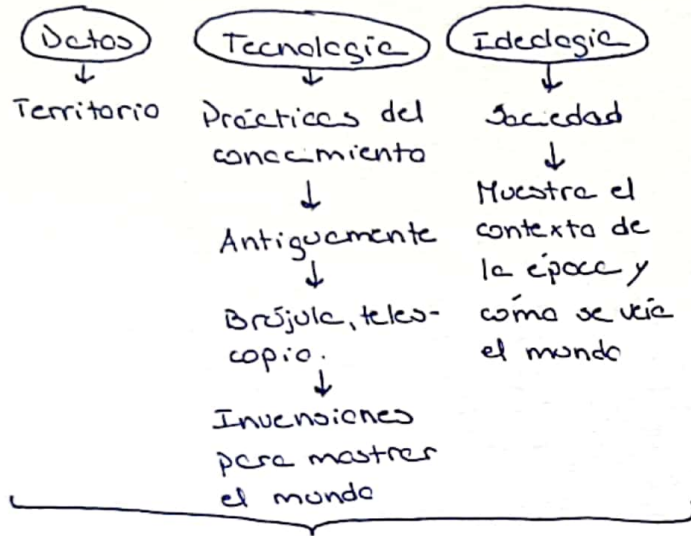 Datos
Tecnología
Ideología
Territorio
Prácticas del
conocimiento
Antiguamente
Brújula, teles-
copio.
Invensiones
para mostrar
el mundo
Sociedad
Muestra el
contexto de
la época y
cómo se veía
el mundo